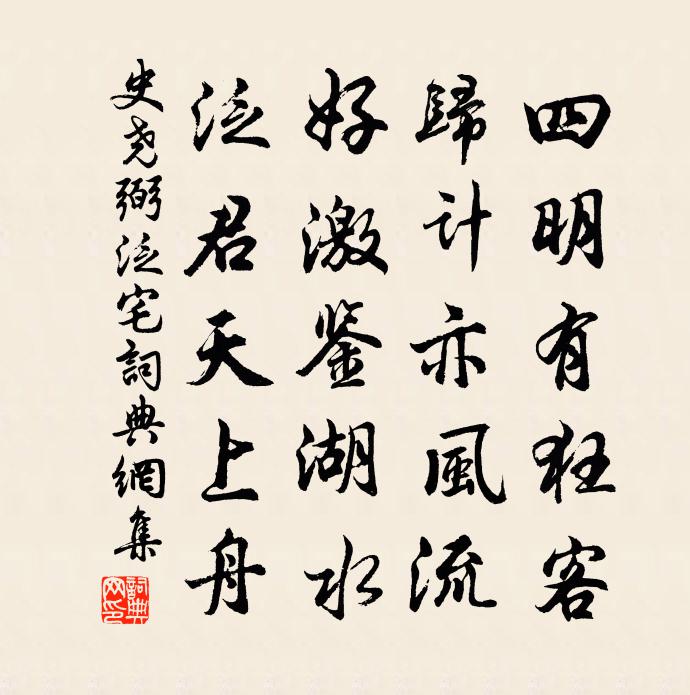 四明有狂客
歸計亦風流
好激鉴湖水
泛君天上舟
史尧弼泛宅詞典網集
詞典網印